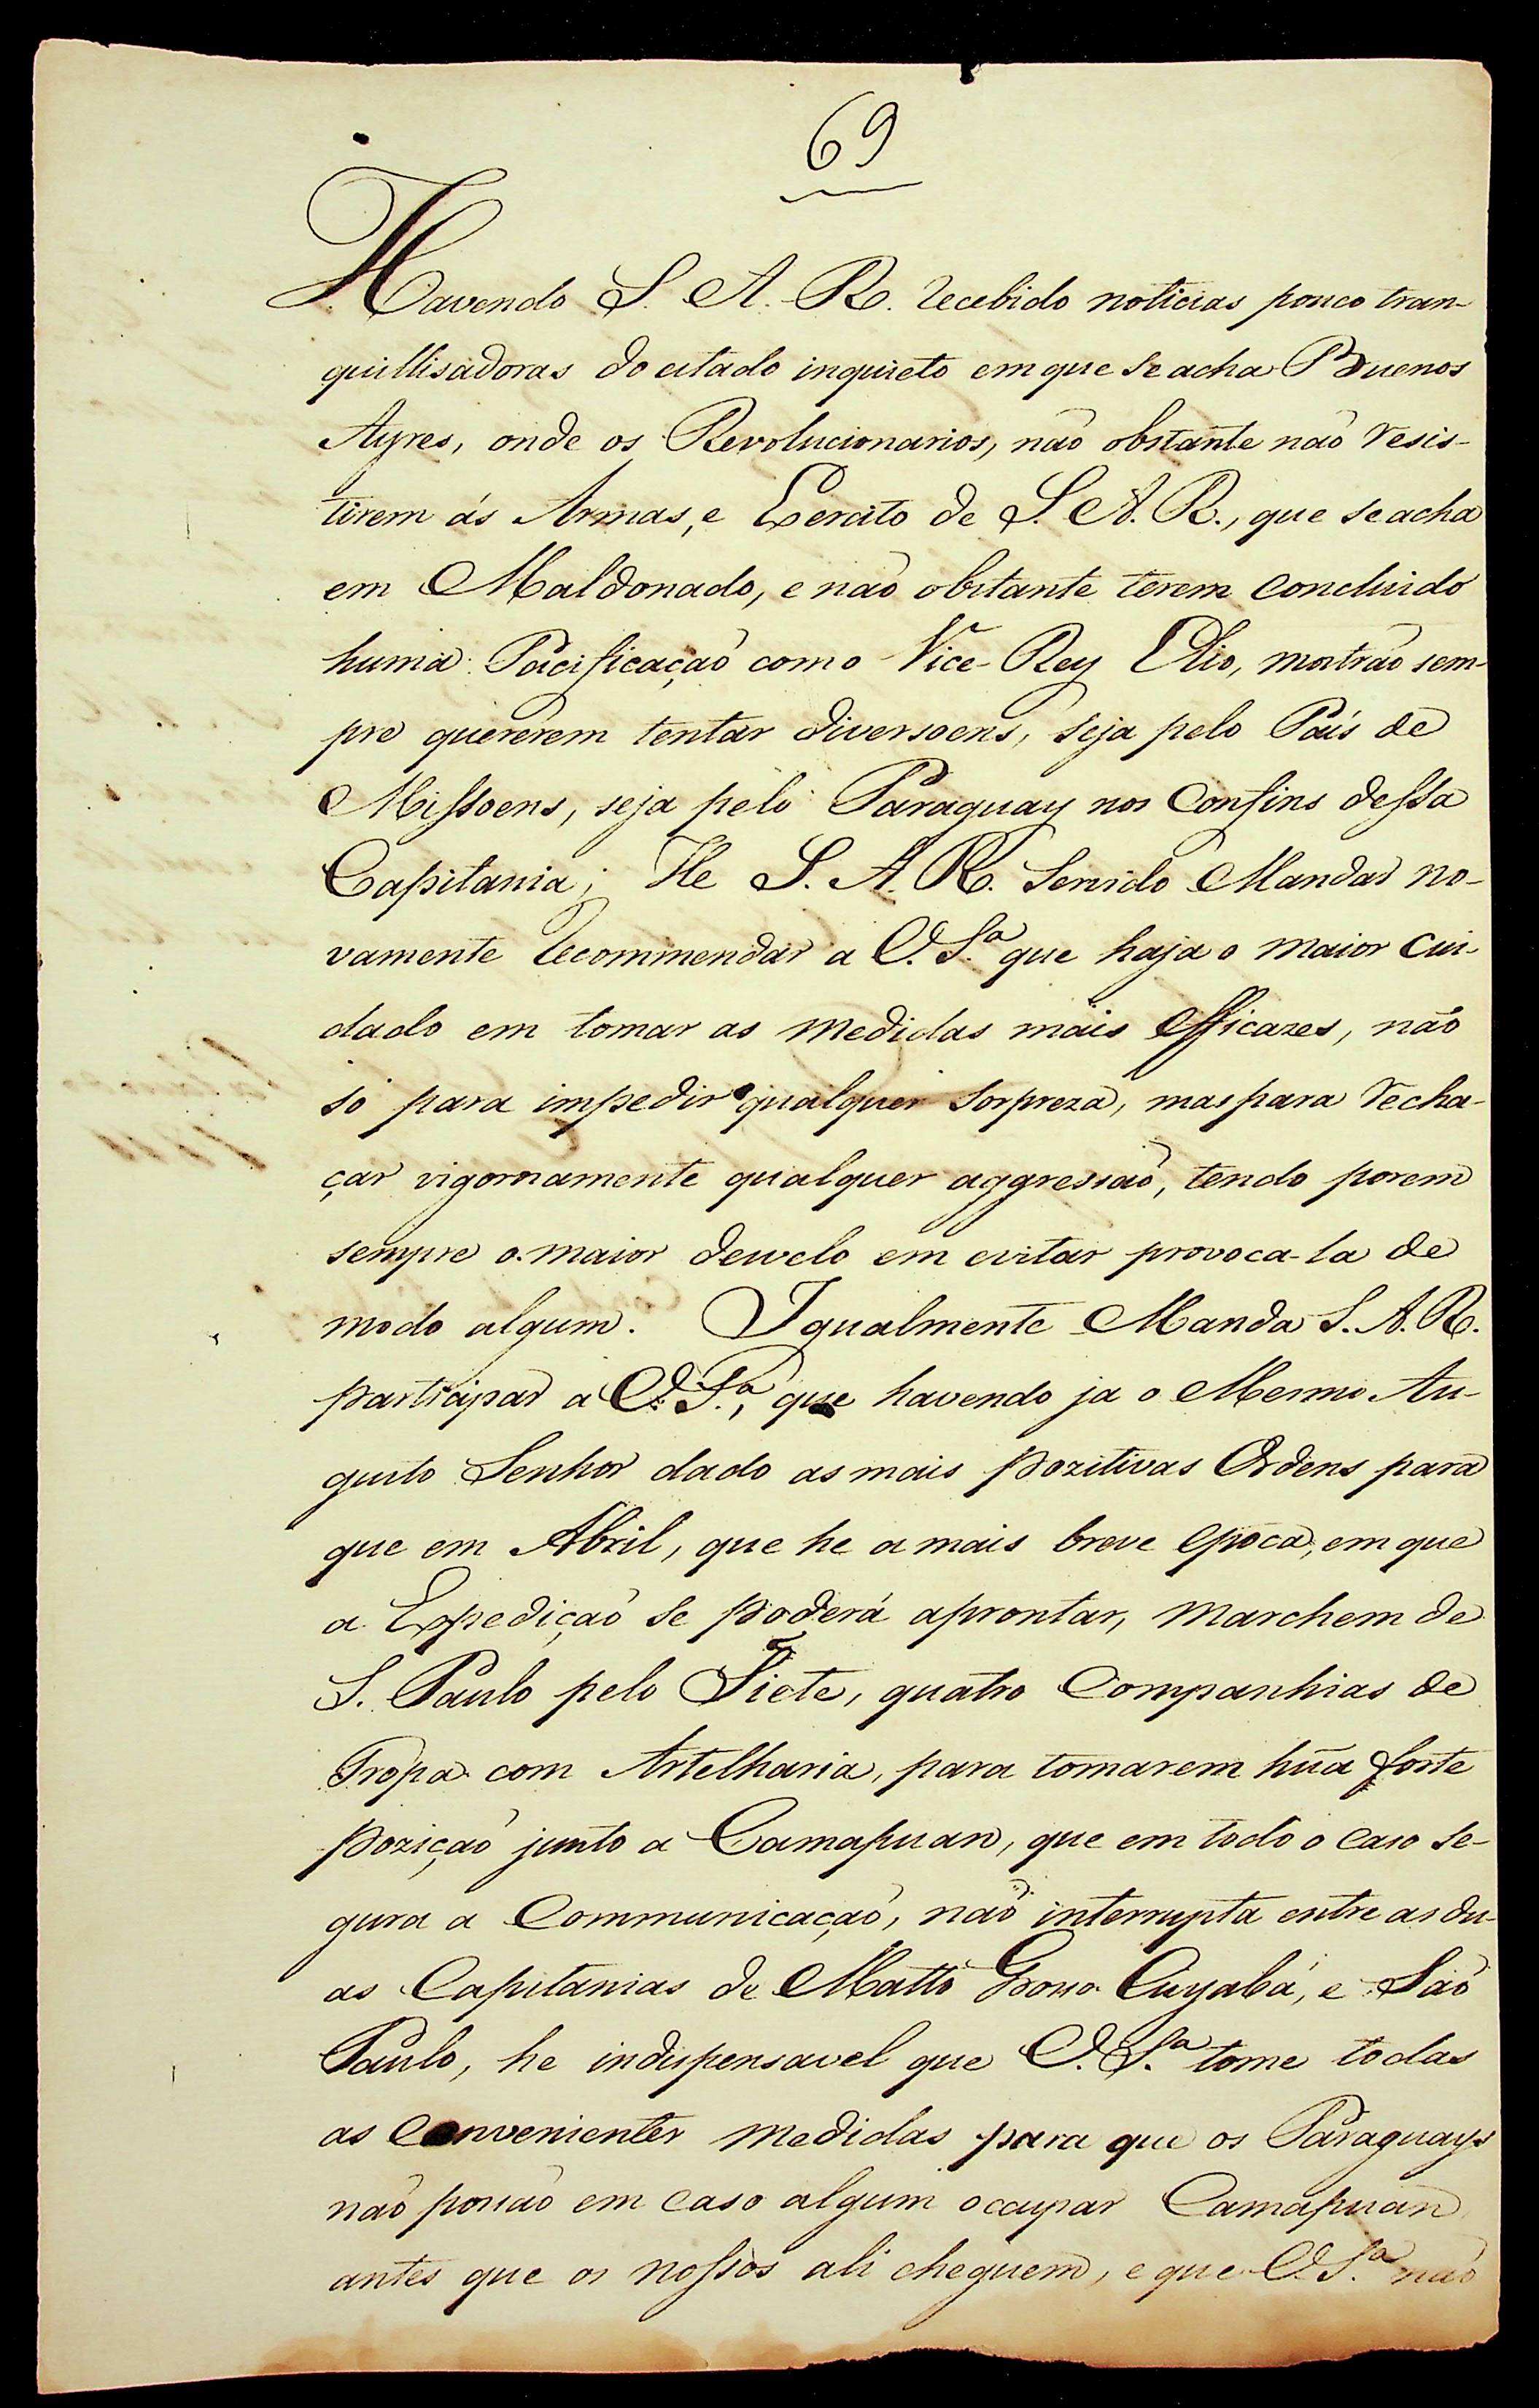 69
Havendo S. A. R. recebido noticias pouco tran-
quillisadoras do estado inquieto em que se acha Buenos
Ayres, onde os Revolucionarios, não obstante não resis-
tirem ás Armas, e Exercito de S. A. R., que se acha
em Maldonado, e não obstante terem concluido
huma Pacificação com o Vice-Rey Elio, mostrão sem-
pre quererem tentar diversoens, seja pelo País de
Missoens, seja pelo Paraguay nos Confins dessa
Capitania; He S. A. R. Servido Mandar no-
vamente recommendar a V. S.ª que haja o maior cui-
dado em tomar as medidas mais efficazes, não
só para impedir qualquer sorpreza, mas para recha-
çar vigorosamente qualquer aggressão, tendo porem
sempre o maior desvelo em evitar provoca-la de
modo algum. Igualmente Manda S. A. R.
participar a V. S.ª, que havendo ja o Mesmo Au-
gusto Senhor dado as mais pozitivas Ordens para
que em Abril, que he a mais breve epoca, em que
a Expedição se poderá aprontar, marchem de
S. Paulo pelo Tiete, quatro Companhias de
Tropa com Artelharia, para tomarem hũa forte
pozição junto a Camapuan, que em todo o caso se-
gura a Communicação, não interrupta entre as du-
as Capitanias de Matto Grosso Cuyabá, e São
Paulo, he indispensavel que V. S.ª tome todas
as convenientes medidas para que os Paraguays
não possão em caso algum occupar Camapuan
antes que os nossos ali cheguem, e que V. S.ª não